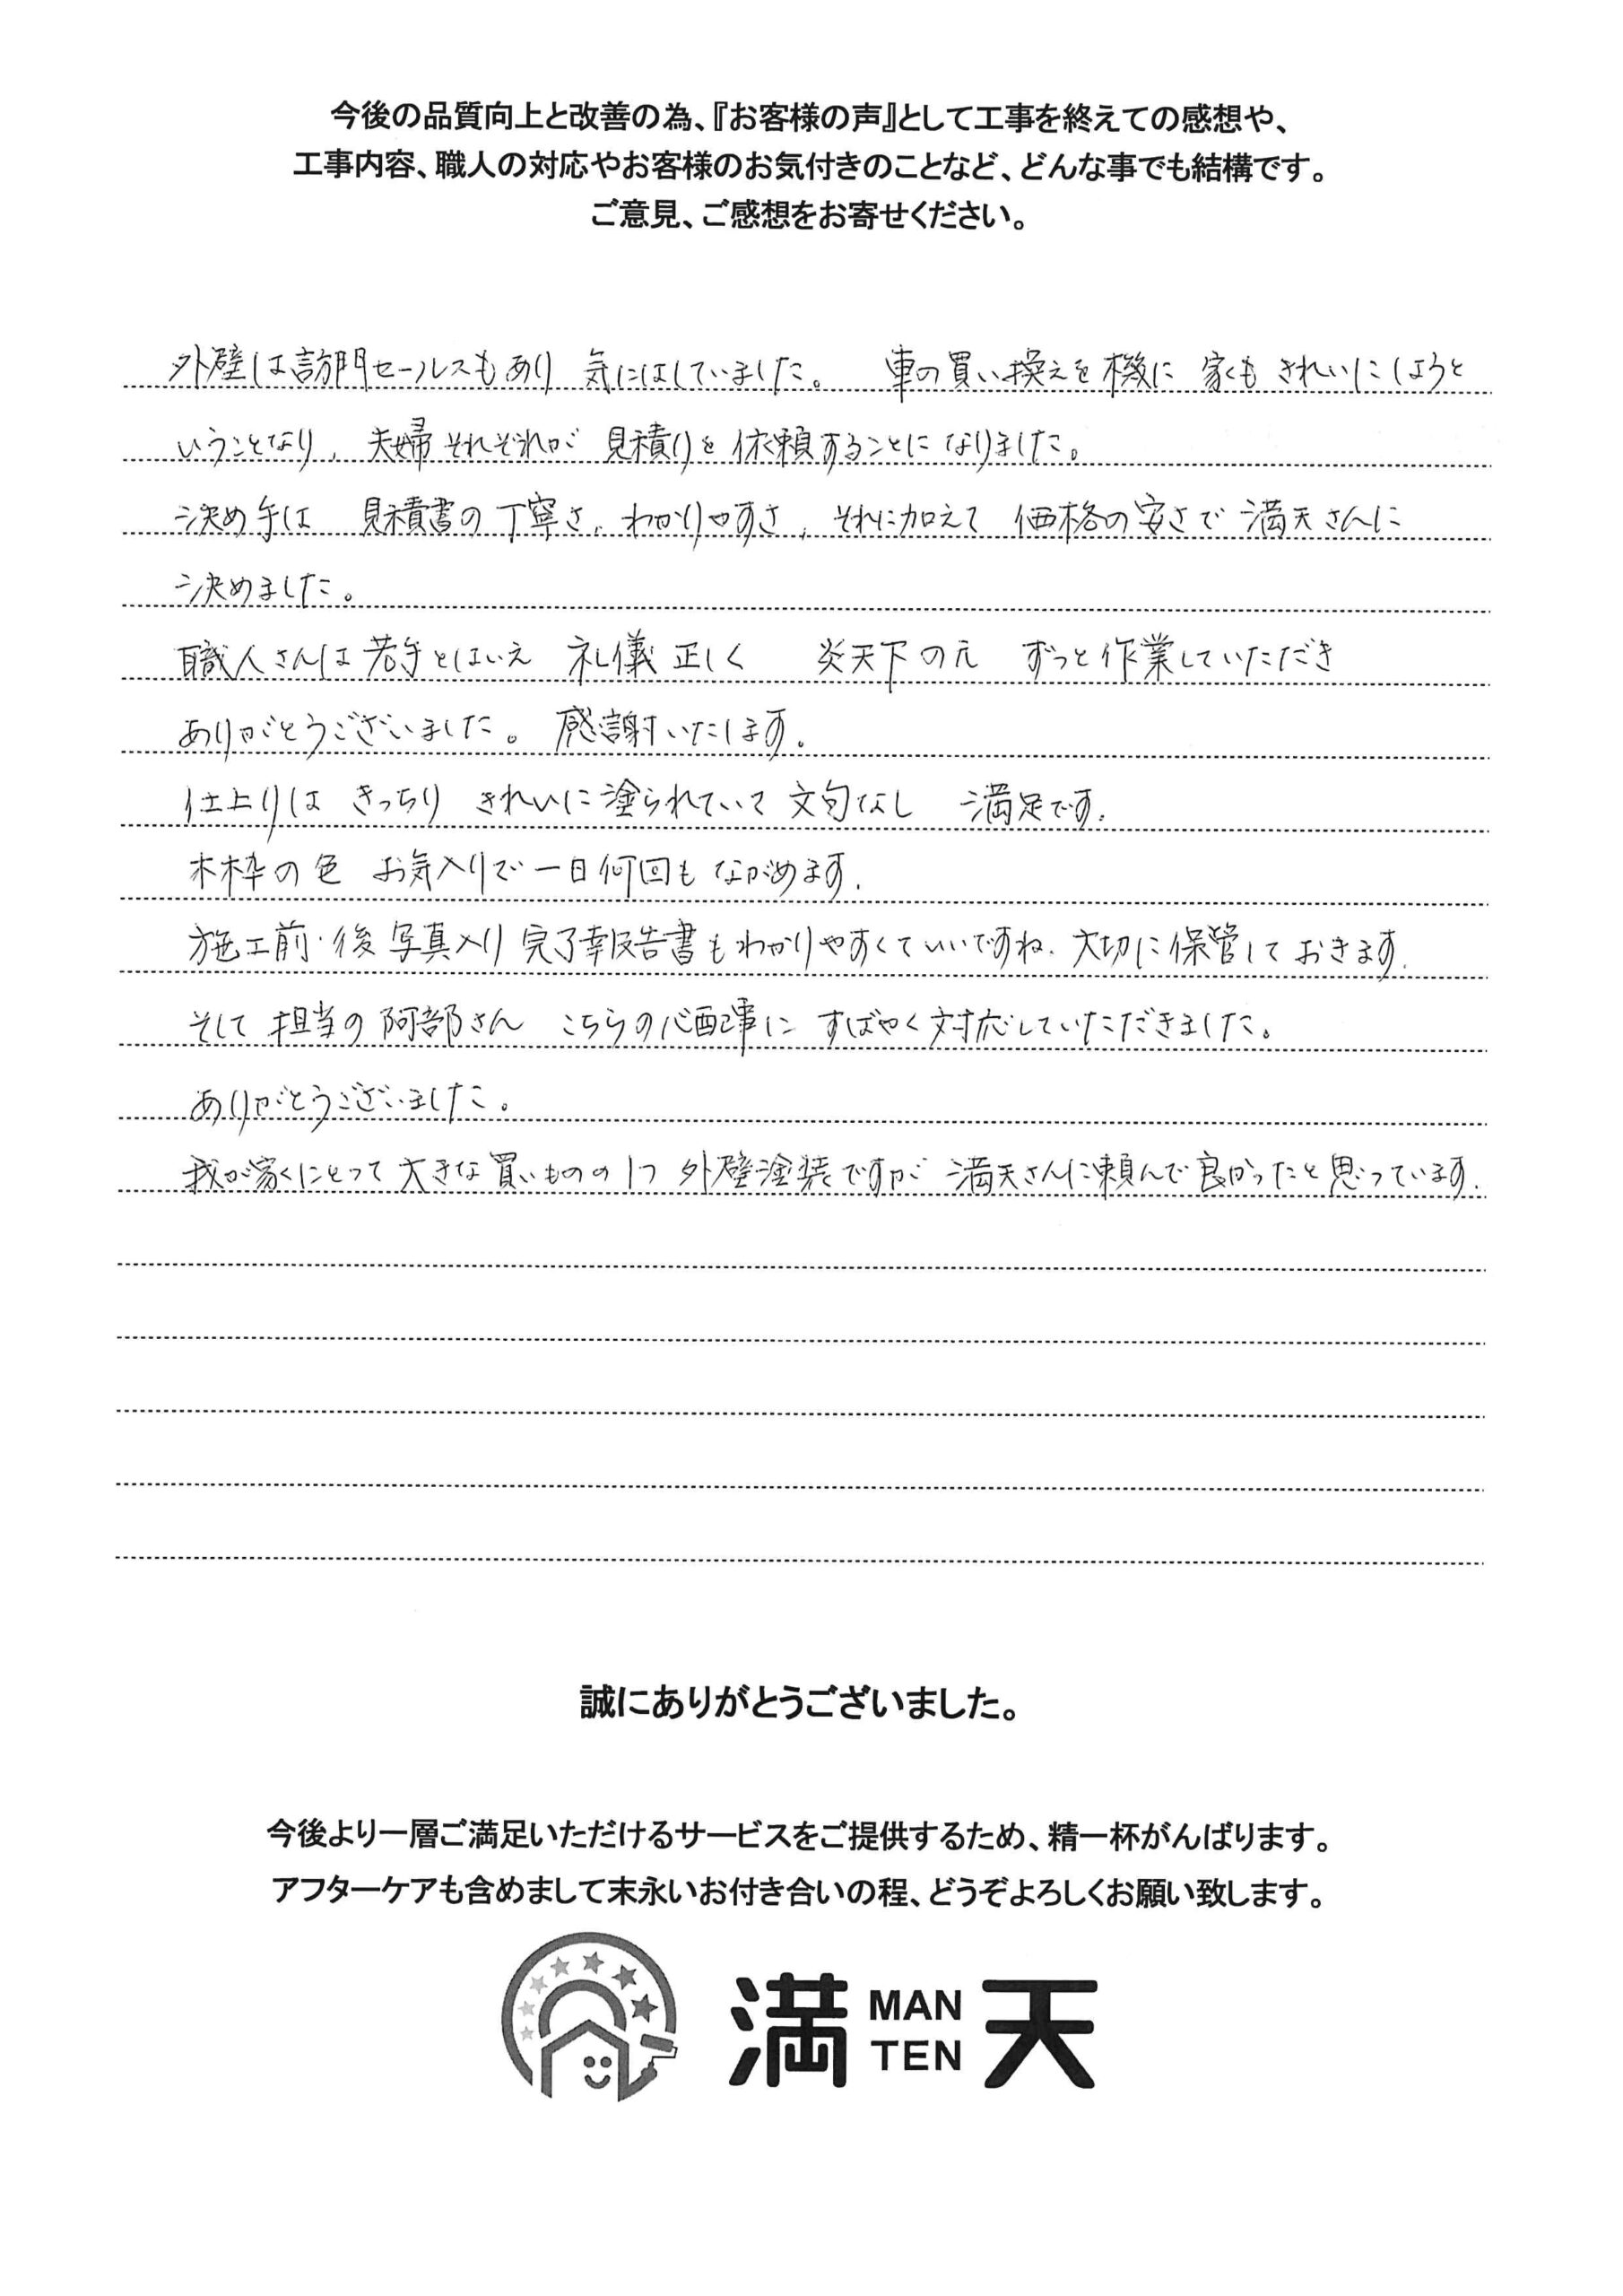 今後の品質向上と改善の為、『お客様の声』として工事を終えての感想や、
工事内容、職人の対応やお客様のお気付きのことなど、どんな事でも結構です。
ご意見、ご感想をお寄せください。
外壁は訪問セールスもあり 気にはしていました。 車の買い換えを機に 家もきれいにしようと
いうことなり、夫婦それぞれが 見積りを依頼することになりました。
決め手は 見積書の丁寧さ、わかりやすさ、それに加えて 価格の安さで 満天さんに
決めました。
職人さんは若手とはいえ 礼儀正しく 炎天下の元 ずっと作業していただき
ありがとうございました。感謝いたします。
仕上りは きっちり きれいに塗られていて 文句なし 満足です。
木枠の色 お気入りで一日何回もながめます。
施工前・後写真入り 完了報告書もわかりやすくていいですね。大切に保管しておきます。
そして 担当の阿部さん こちらの心配事に すばやく対応していただきました。
ありがとうございました。
我が家にとって 大きな買いものの1つ 外壁塗装ですが 満天さんに頼んで良かったと思っています。
誠にありがとうございました。
今後より一層ご満足いただけるサービスをご提供するため、精一杯がんばります。
アフターケアも含めまして末永いお付き合いの程、どうぞよろしくお願い致します。
満天 MAN TEN